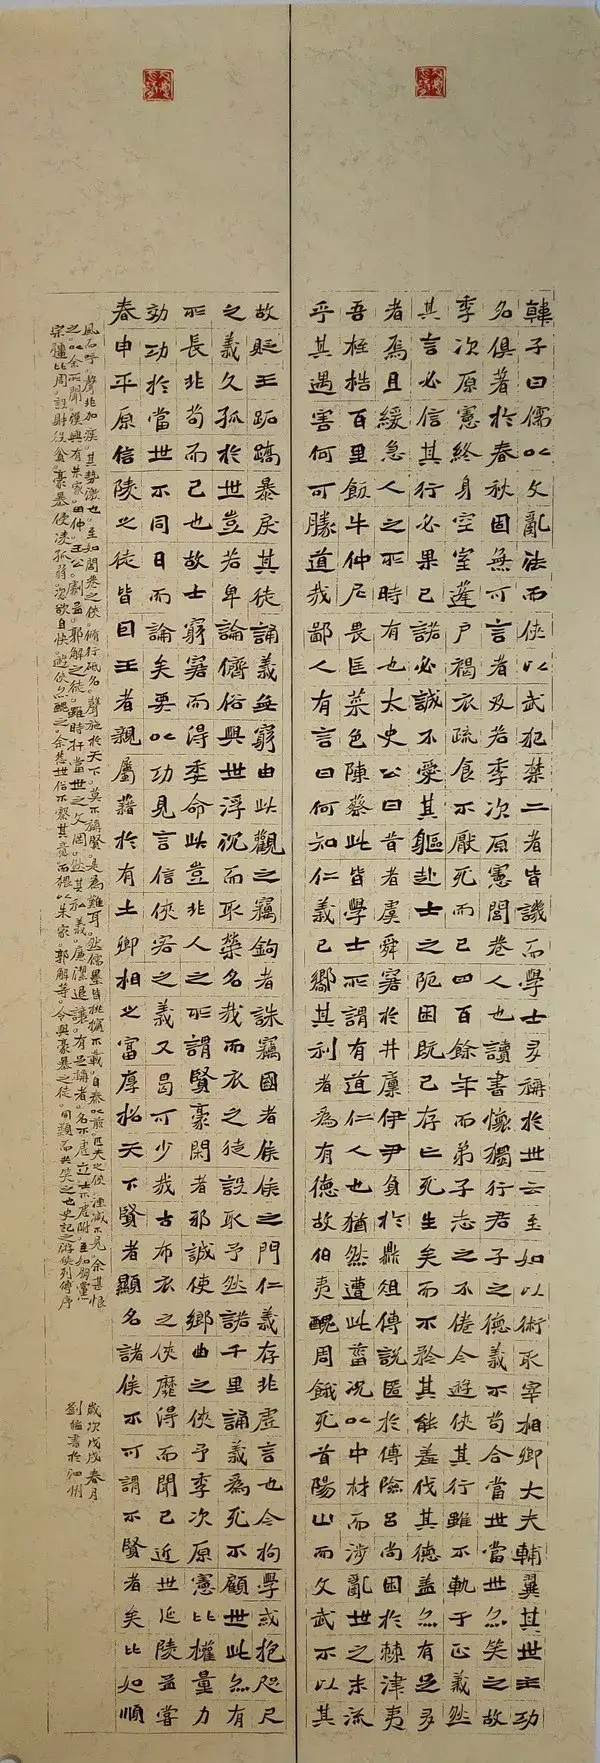 韓子曰儒以文亂法而俠以武犯禁二者皆譏而學士多稱於世云至如以術取宰相卿大夫輔翼其世主功
名俱著於春秋固無可言者及若季次原憲閭巷人也讀書懷獨行君子之德義不苟合當世當世亦笑之故
季次原憲終身空室蓬戶褐衣疏食不厭死而已四百餘年而弟子志之不倦今遊俠其行雖不軌于正義然
其言必信其行必果已諾必誠不愛其軀赴士之阨困既已存亡死生矣而不矜其能羞伐其德蓋亦有足多
者焉且緩急人之所時有也太史公曰昔者虞舜窘於井廩伊尹負於鼎俎傅說匿於傅險呂尚困於棘津夷
吾桎梏百里飯牛仲尼畏匡菜色陳蔡此皆學士所謂有道仁人也猶然遭此菑況以中材而涉亂世之末流
乎其遇害何可勝道哉鄙人有言曰何知仁義已嚮其利者為有德故伯夷醜周餓死首陽山而文武不以其
故貶王跖蹻暴戾其徒誦義無窮由此觀之竊鉤者誅竊國者侯侯之門仁義存非虛言也今拘學或抱咫尺
之義久孤於世豈若卑論儕俗與世浮沉而取榮名哉而衣之徒設取予然諾千里誦義為死不顧世此亦有
所長非苟而已也故士窮窘而得委命此豈非人之所謂賢豪閒者邪誠使鄉曲之俠予季次原憲比權量力
効功於當世不同日而論矣要以功見言信俠客之義又曷可少哉古布衣之俠靡得而聞已近世延陵孟嘗
春申平原信陵之徒皆因王者親屬藉於有土卿相之富厚招天下賢者顯名諸侯不可謂不賢者矣比如順
風而呼。聲非加疾。其勢激也。至如閭巷之俠。脩行砥名。聲施於天下。莫不稱賢。是為難耳。然儒墨皆排擯不載。自秦以前。匹夫之俠。湮滅不見。余甚恨
之。以余所聞。漢興有朱家。田仲。王公。劇孟。郭解之徒。雖時扞當世之文罔。然其私義。廉潔退讓。有足稱者。名不虛立。士不虛附。至如朋黨
宗彊比周。設財役貧。豪暴侵凌孤弱。恣欲自快。遊俠亦醜之。余悲世俗不察其意。而猥以朱家。郭解等。令與豪暴之徒。同類而共笑之也 史記之游俠列傳序
歲次戊戌春月
劉
書於泗州